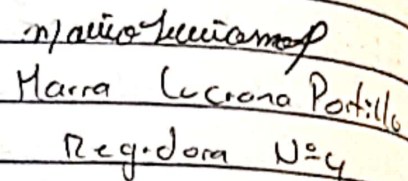 Maria Lucrona Portillo
Regidora Nº 4